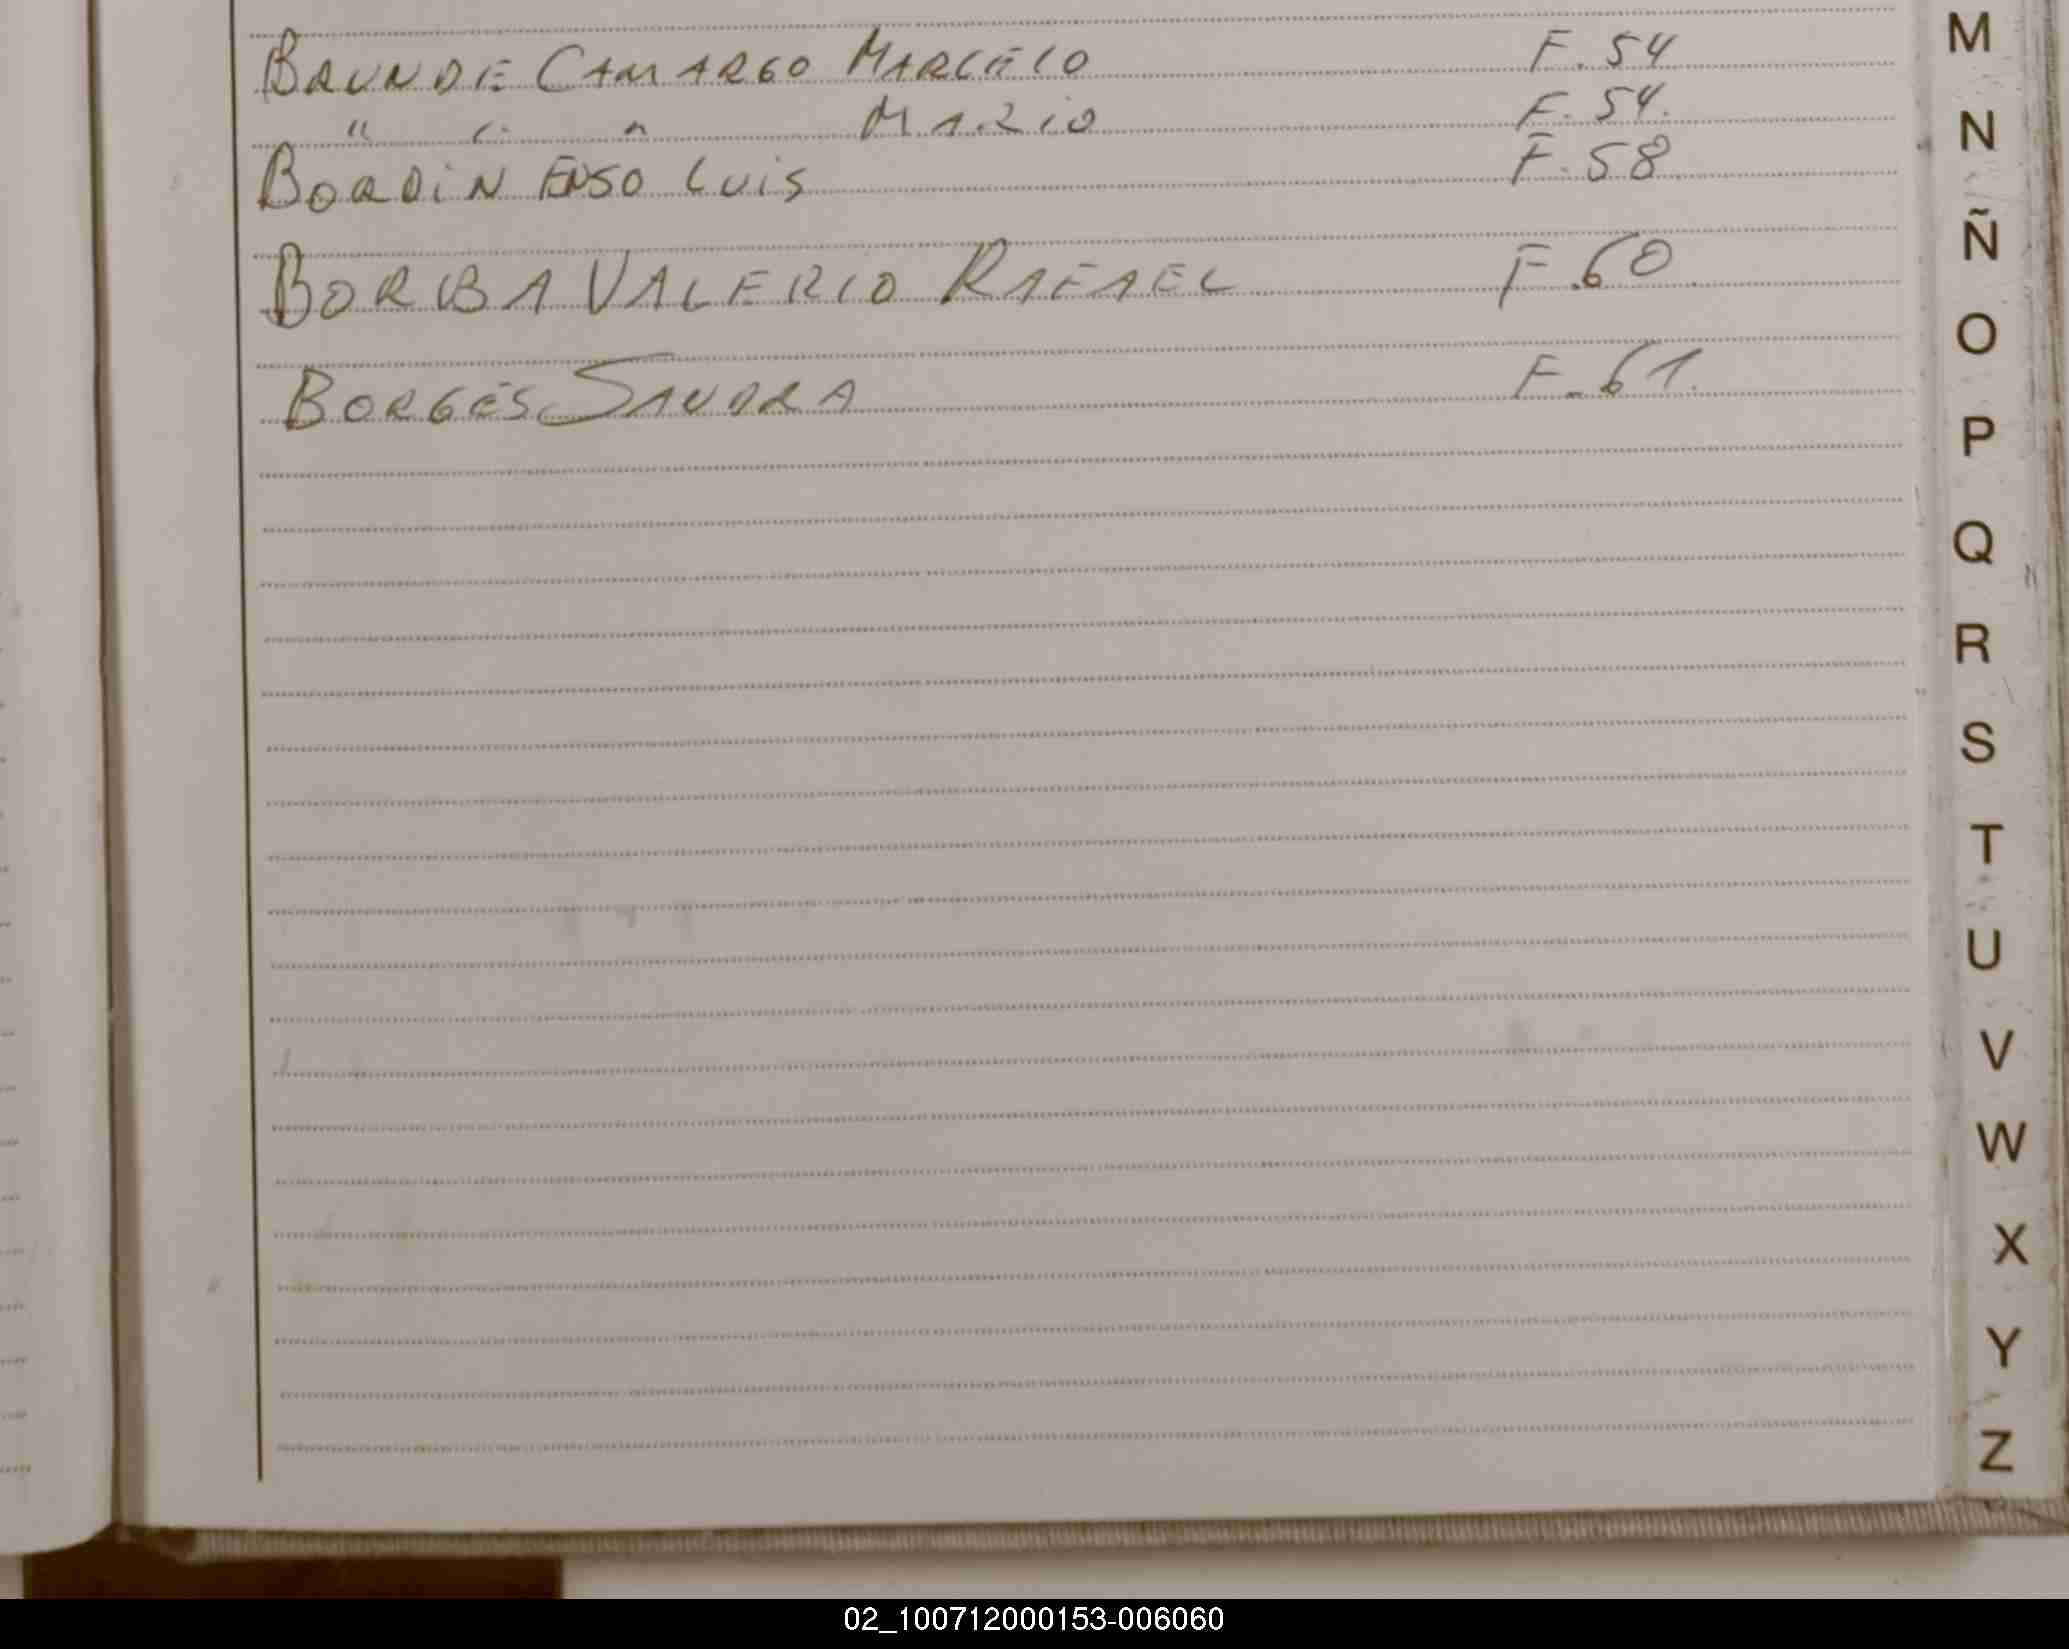 BRUN DE CAMARGO MARCELO F. 54
" " " MARIO F. 54.
BORDIN ENSO LUIS F. 58
BORBA VALERIO RAFAEL F. 60
BORGES SANDRA F. 61.
M
N
Ñ
O
P
Q
R
S
T
U
V
W
X
Y
Z
02_100712000153-006060